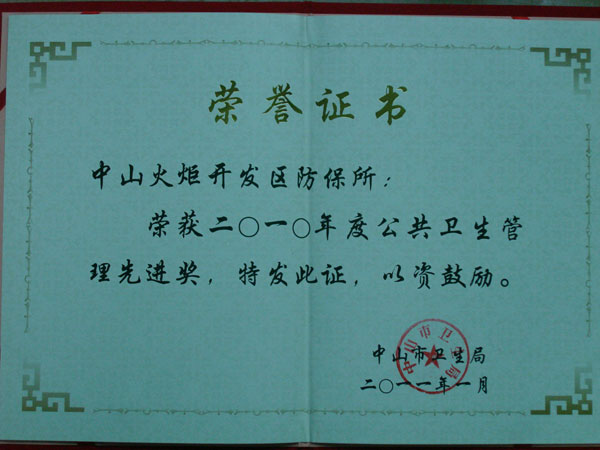 荣誉证书
中山火炬开发区防保所：
荣获二〇一〇年度公共卫生管
理先进奖，特发此证，以资鼓励。
中山市卫生局
中山市卫生局
二〇一一年一月